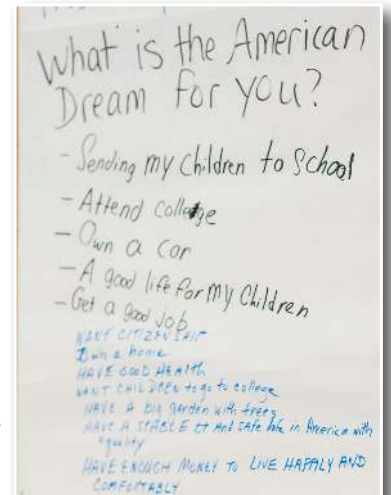 What is the American
Dream for you?
- Sending my children to School
- Attend college
- Own a car
- A good life for my Children
- Get a good job
WANT CITIZENSHIP
Own a home
HAVE GOOD HEALTH
WANT CHILDREN to go to college
HAVE A big garden with trees
HAVE A STABLE And safe life in America with
equality
HAVE ENOUGH MONEY TO LIVE HAPPALY AND
COMFORTABLY